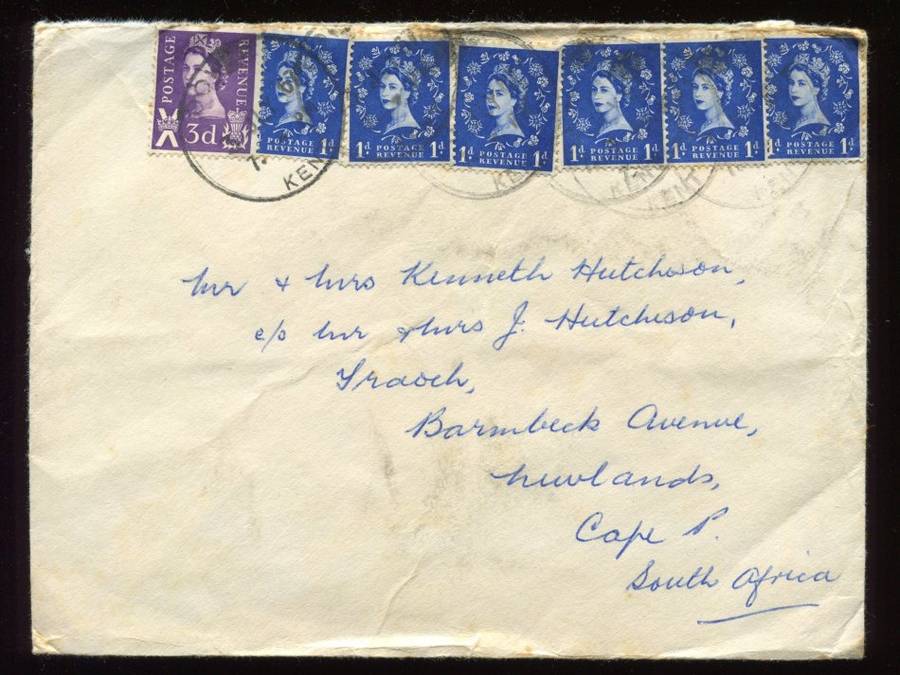 POSTAGE REVENUE 3d
POSTAGE REVENUE 1d
1d POSTAGE REVENUE 1d
1d POSTAGE REVENUE 1d
1d POSTAGE REVENUE 1d
1d POSTAGE REVENUE 1d
1d POSTAGE REVENUE 1d
KENT
KENT
KENT
KENT
KENT
Mr & Mrs Kenneth Hutcheson,
c/o Mr & Mrs J. Hutcheson,
Fraoch,
Barmbeck Avenue,
Newlands,
Cape P.
South Africa